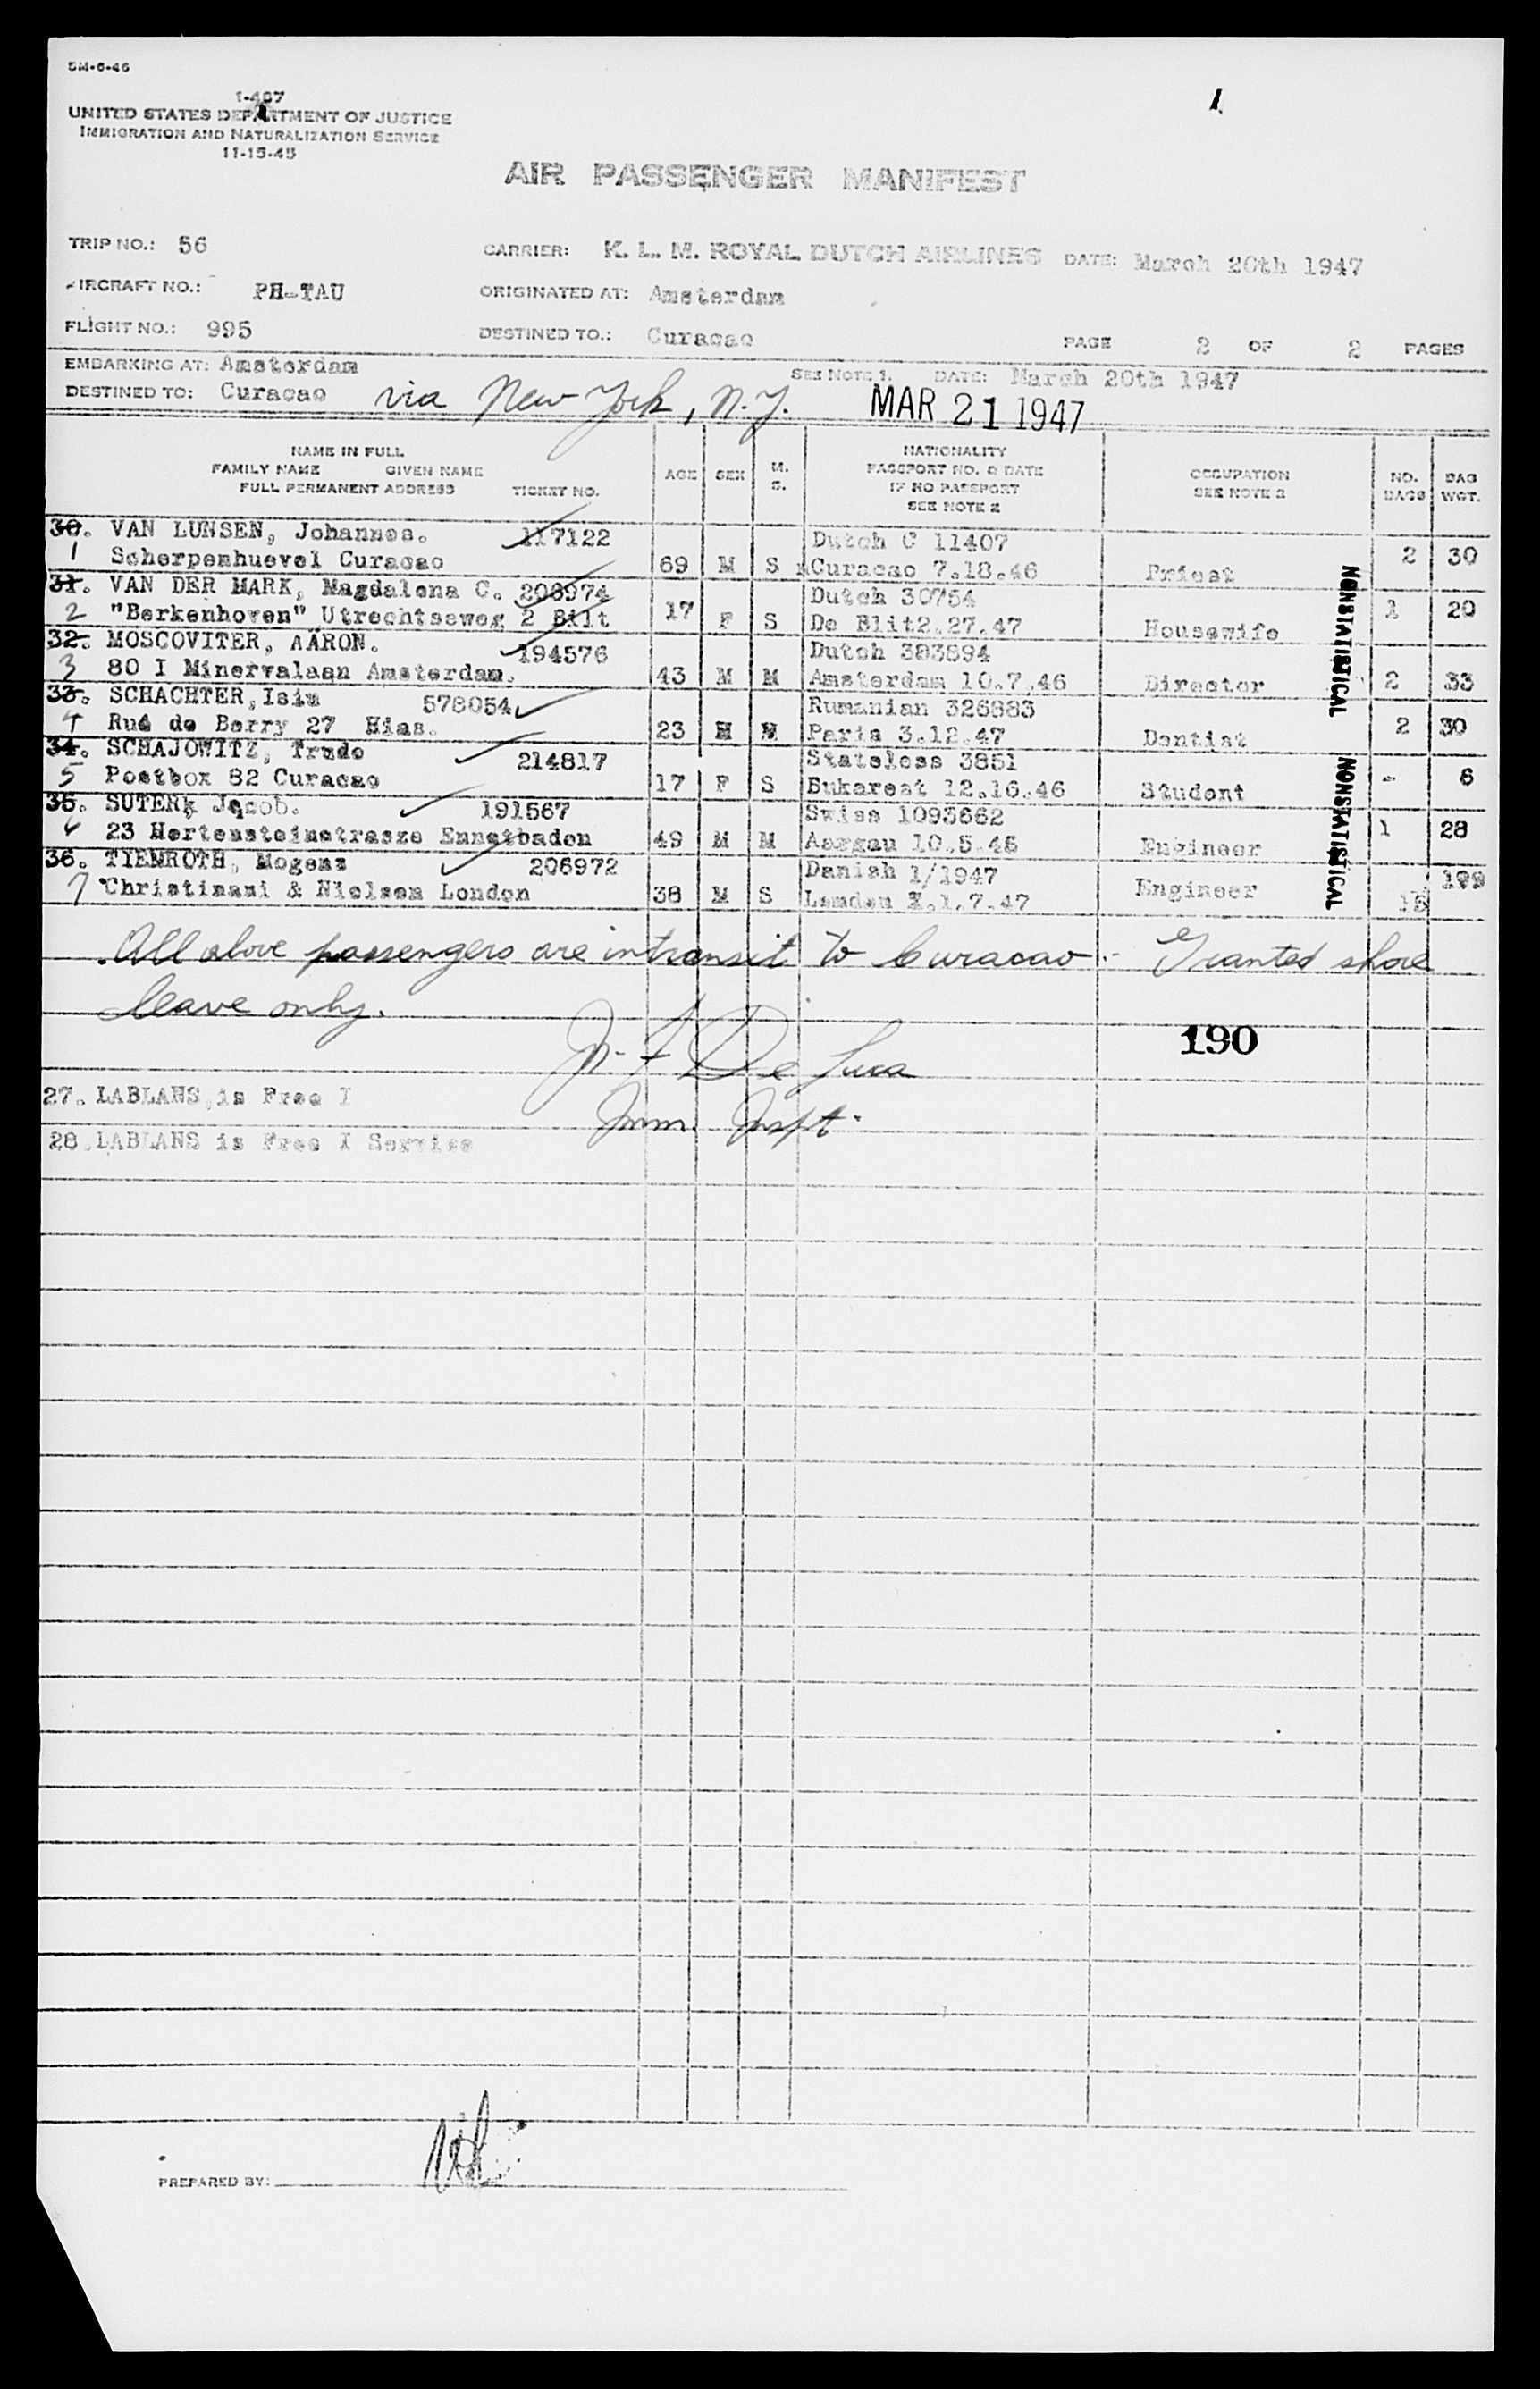 5M-6-46
1-467
UNITED STATES DEPARTMENT OF JUSTICE
IMMIGRATION AND NATURALIZATION SERVICE
11-15-45
1
AIR PASSENGER MANIFEST
TRIP NO.: 56 CARRIER: K. L. M. ROYAL DUTCH AIRLINES DATE: March 20th 1947
AIRCRAFT NO.: PH-TAU ORIGINATED AT: Amsterdam
FLIGHT NO.: 995 DESTINED TO.: Curacao PAGE 2 OF 2 PAGES
EMBARKING AT: Amsterdam SEE NOTE 1. DATE: March 20th 1947
DESTINED TO: Curacao via New York, N.Y. MAR 21 1947
NAME IN FULL
FAMILY NAME GIVEN NAME
FULL PERMANENT ADDRESS TICKET NO. AGE SEX M. S. NATIONALITY PASSPORT NO. & DATE IF NO PASSPORT SEE NOTE 2 OCCUPATION SEE NOTE 2 NO. BAGS BAG WGT.
30. VAN LUNSEN, Johannes. 117122 Dutch C 11407
1 Scherpenhuevel Curacao 69 M S Curacao 7.18.46 Priest 2 30
31. VAN DER MARK, Magdalena C. 206974 Dutch 30754
2 "Berkenhoven" Utrechtseweg 2 Bilt 17 F S De Blit2.27.47 Housewife 1 20
32. MOSCOVITER, AARON. 194576 Dutch 383894
3 80 I Minervalaan Amsterdam. 43 M M Amsterdam 10.7.46 Director 2 33
33. SCHACHTER, Isim 578054 Rumanian 326883
4 Rué de Berry 27 Bias. 23 M M Paris 3.12.47 Dentist 2 30
34. SCHAJOWITZ, Trude 214817 Stateless 3851
5 Postbox 82 Curacao 17 F S Bukarest 12.16.46 Student - 8
35. SUTER, Jacob. 191567 Swiss 1093662
6 23 Hertensteinstrasze Ennetbaden 49 M M Aargau 10.5.45 Engineer 1 28
36. TIEMROTH, Mogens 206972 Danish 1/1947
7 Christinani & Nielsen London 38 M S London X.1.7.47 Engineer 199
NONSTATISTICAL
NONSTATISTICAL
All above passengers are intransit to Curacao. - Granted shore
leave only.
190
De Luca
27. LABLANS, is Free I
Imm. Inspt.
28. LABLANS is Free I Service
PREPARED BY: